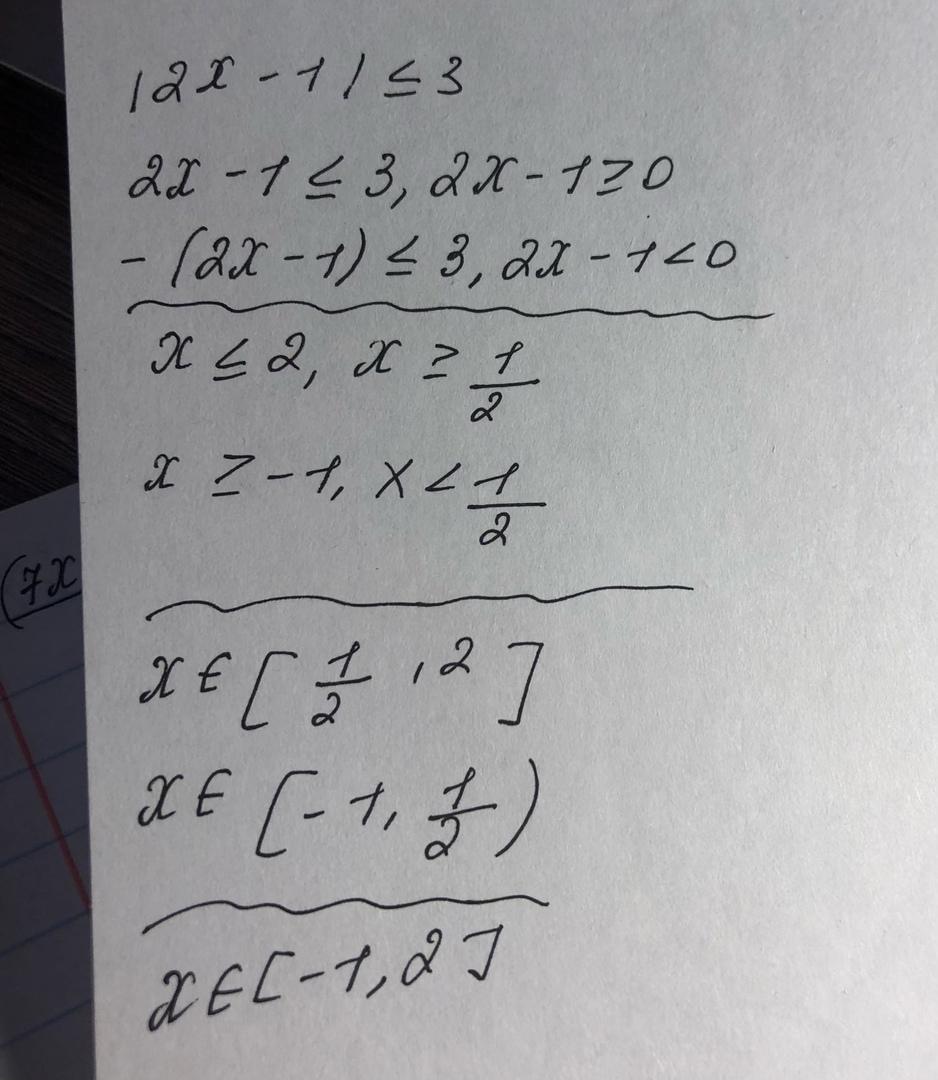 |2x - 1| ≤ 3
2x - 1 ≤ 3, 2x - 1 ≥ 0
- (2x - 1) ≤ 3, 2x - 1 < 0
x ≤ 2, x ≥ 1/2
x ≥ -1, x < 1/2
(7x
x ∈ [1/2, 2]
x ∈ [-1, 1/2)
x ∈ [-1, 2]